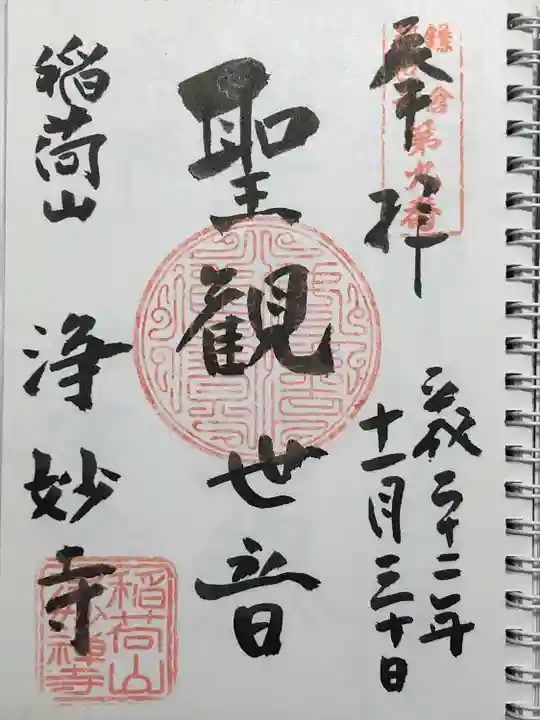 鎌倉
第九番
奉拝
平成二十二年
十一月三十日
聖観世音
稲荷山
浄妙寺
稲荷山
浄妙禅寺